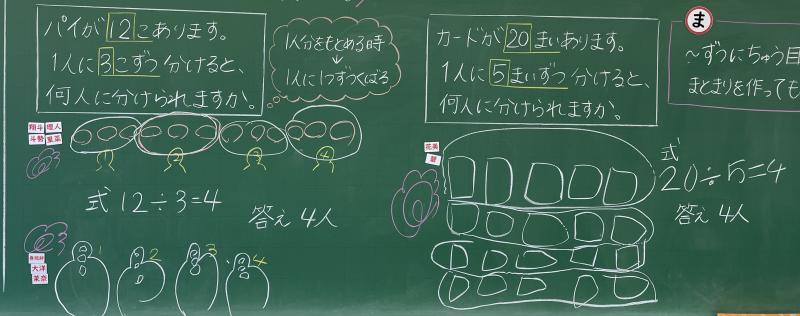 パイが12こあります。
1人に3こずつ分けると、
何人に分けられますか。
1人分をもとめる時
↓
1人に1つずつくばる
翔斗 理人
1 2 3 4
式 12÷3=4
答え 4人
大洋
1 2 3 4
カードが20まいあります。
1人に5まいずつ分けると、
何人に分けられますか。
花美
式
20÷5=4
答え 4人
ま
〜ずつにちゅう目
まとまりを作っても